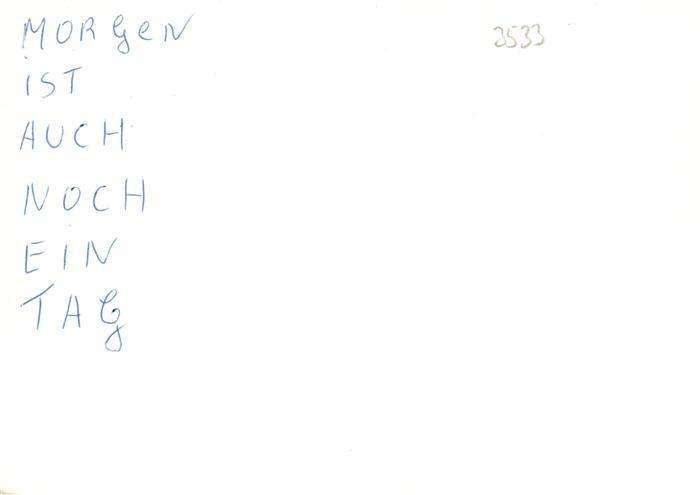 MORGEN 3533
IST
AUCH
NOCH
EIN
TAG